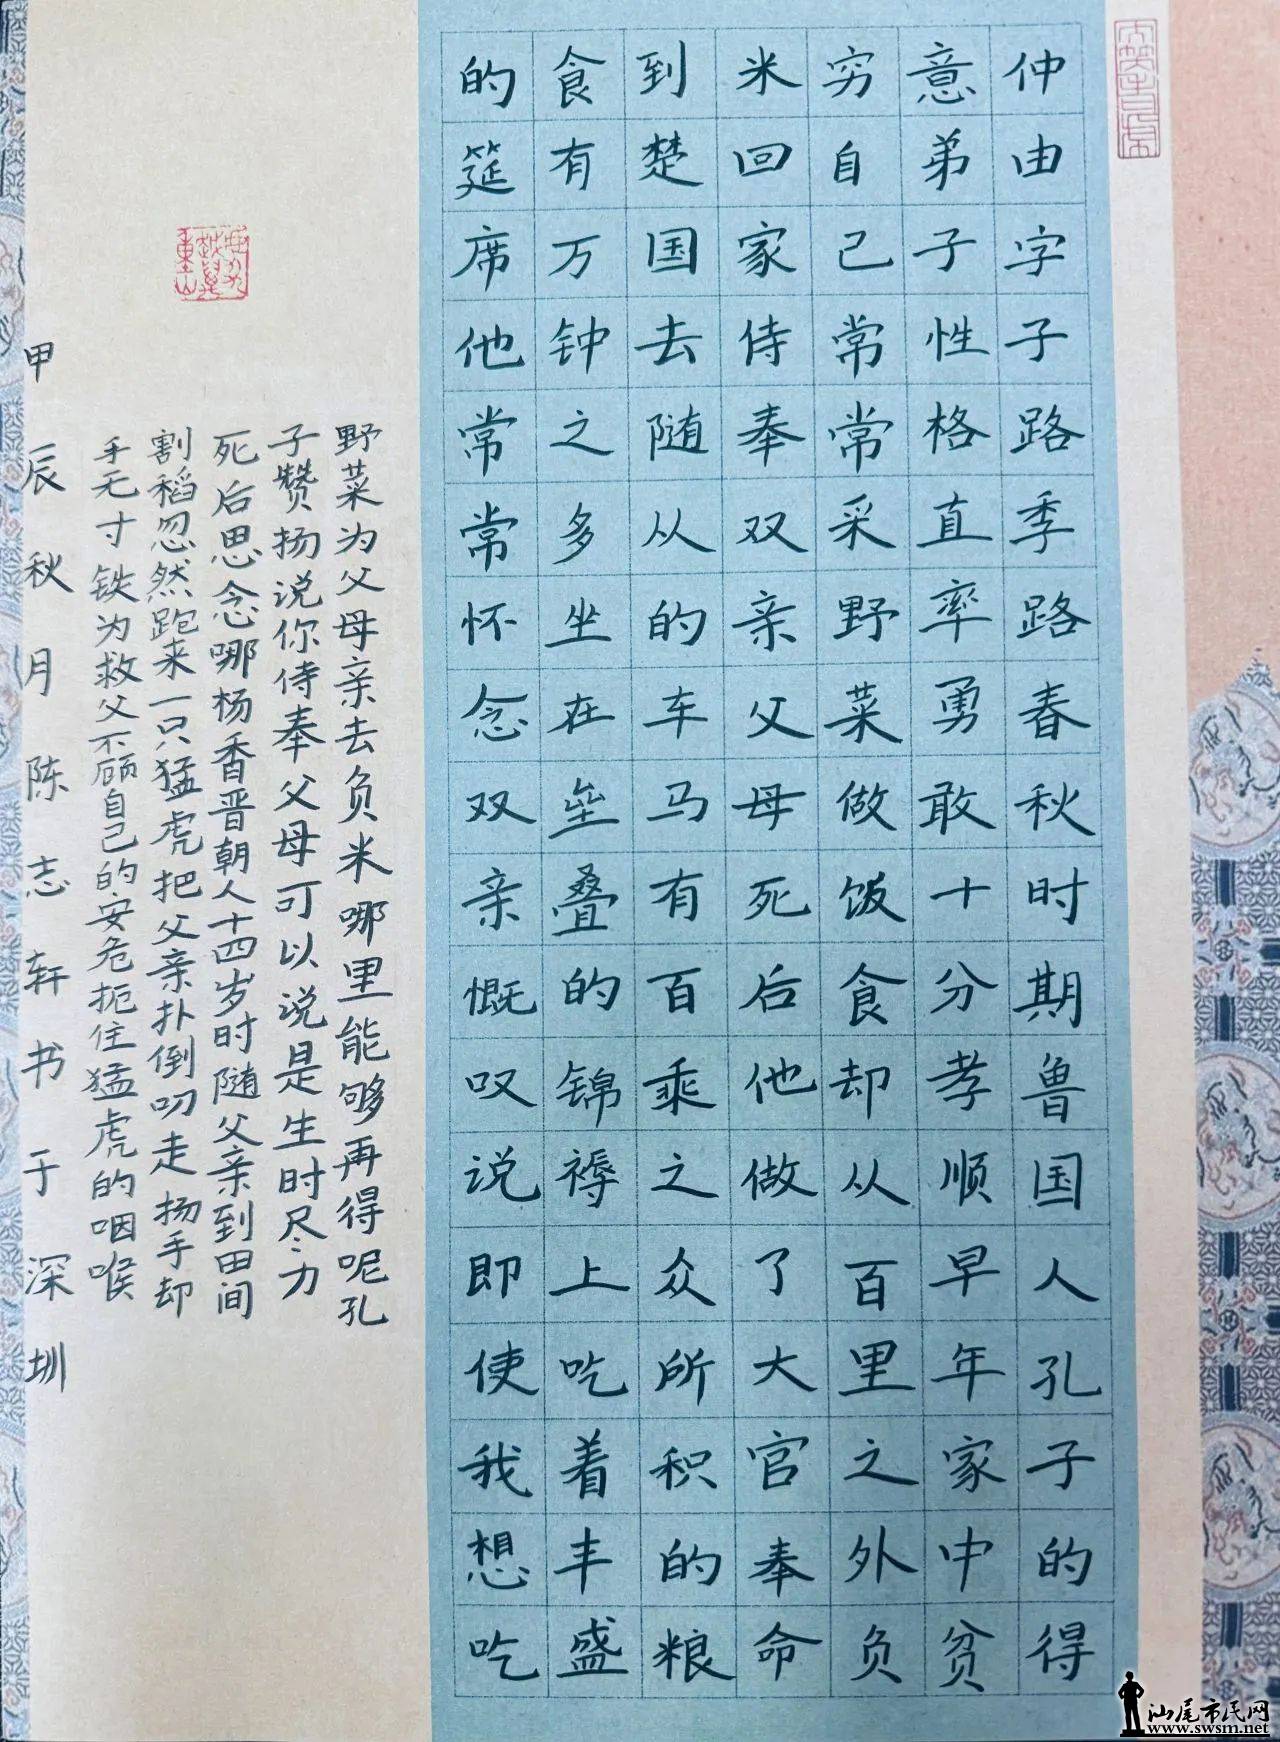 仲由字子路季路春秋时期鲁国人孔子的得
意弟子性格直率勇敢十分孝顺早年家中贫
穷自己常常采野菜做饭食却从百里之外负
米回家侍奉双亲父母死后他做了大官奉命
到楚国去随从的车马有百乘之众所积的粮
食有万钟之多坐在垒叠的锦褥上吃着丰盛
的筵席他常常怀念双亲慨叹说即使我想吃
野菜为父母亲去负米哪里能够再得呢孔
子赞扬说你侍奉父母可以说是生时尽力
死后思念哪杨香晋朝人十四岁时随父亲到田间
割稻忽然跑来一只猛虎把父亲扑倒叼走扬手却
手无寸铁为救父不顾自己的安危扼住猛虎的咽喉
甲辰秋月陈志轩书于深圳
汕尾市民网
www.swsm.net